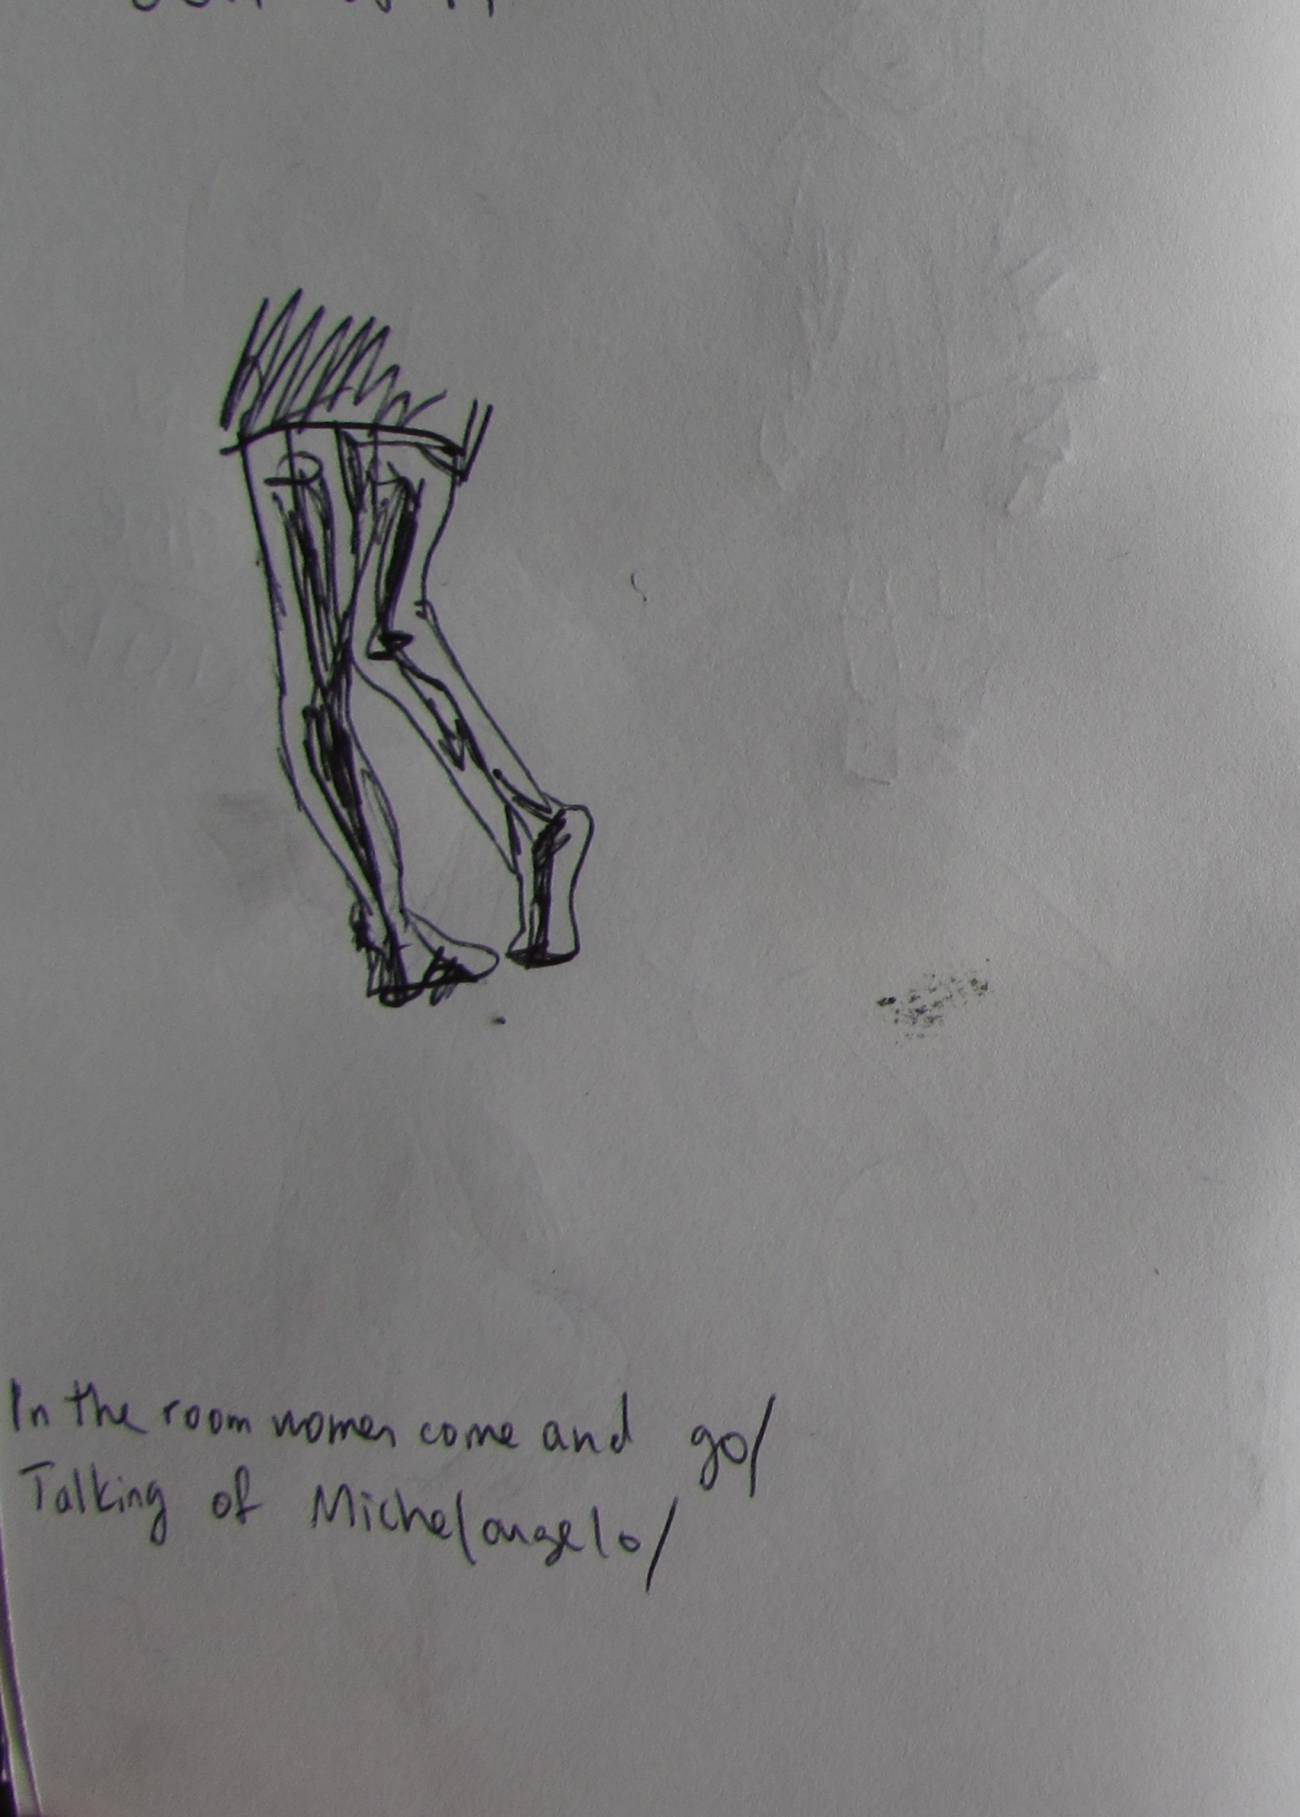 In the room women come and go/
Talking of Michelangelo/